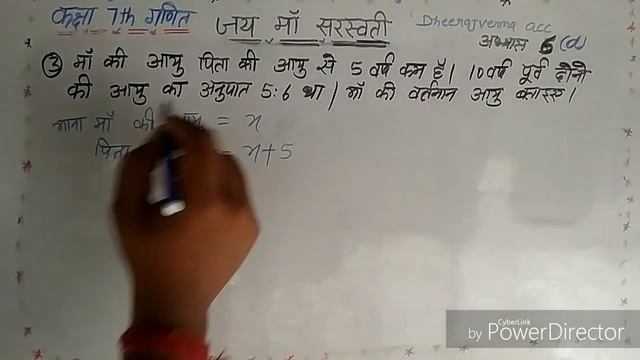 कक्षा 7th गणित
जय माँ सरस्वती
Dheerajverma acc
अभ्यास 6 (d)
③ माँ की आयु पिता की आयु से 5 वर्ष कम है। 10 वर्ष पूर्व दोनो
की आयु का अनुपात 5:6 था। माँ की वर्तमान आयु बताइए।
माना माँ की = x
पिता = x+5
CyberLink
by PowerDirector